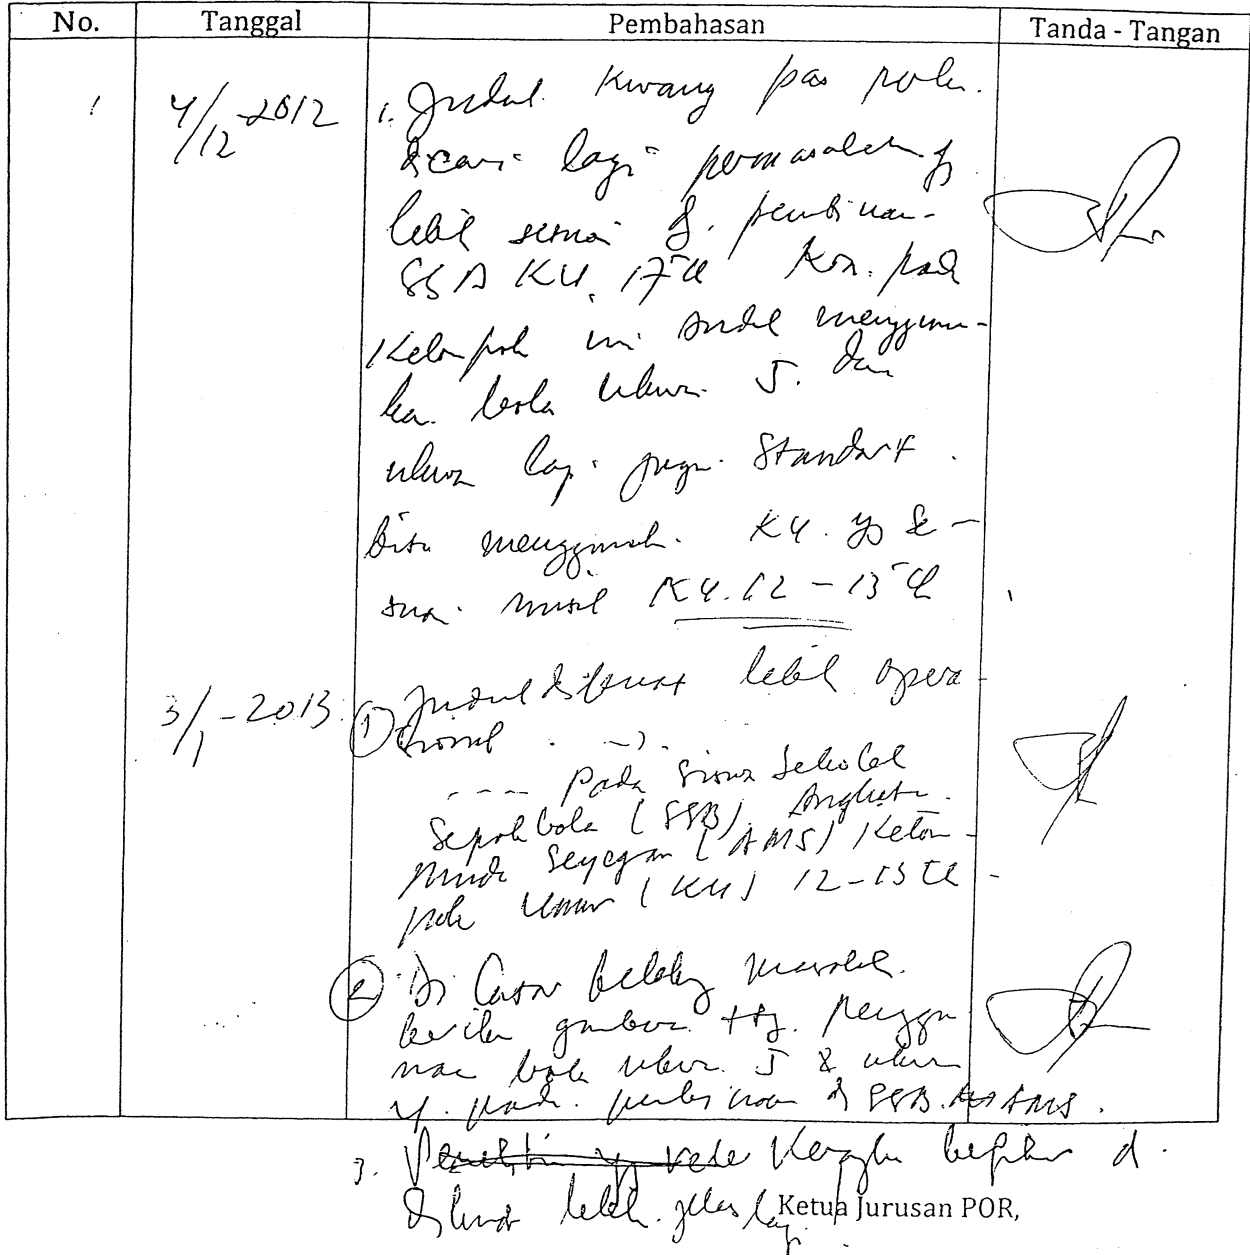 No. Tanggal Pembahasan Tanda - Tangan
1 4/12-2012 1. Judul kurang pas perlu
dicari lagi permasalahan yg
lebih sesuai dg. pembinaan
SSB KU. 17 th Krn. pada
Kelompok ini sudah menggunu-
kan bola ukuran 5. dan
ukuran lap. juga Standart.
Bisa menggunak. KU. yg se-
suai misal KU. 12 - 13 th
3/1-2013. 1 Judul dibuat lebih opera-
sional
---- pada siswa sekolah
sepak bola (SSB) Angkatan
Muda Seyegan (AMS) Kelom-
pok Umur (KU) 12-13 th
2 Di latar belakang masalah
berikan gambaran ttg. penggu
naan bola ukuran 5 & ukuran
4. pada. pembinaan di SSB. AMS.
3. Kerangka berpikir d.
dibuat lebih jelas lagi.
Ketua Jurusan POR,